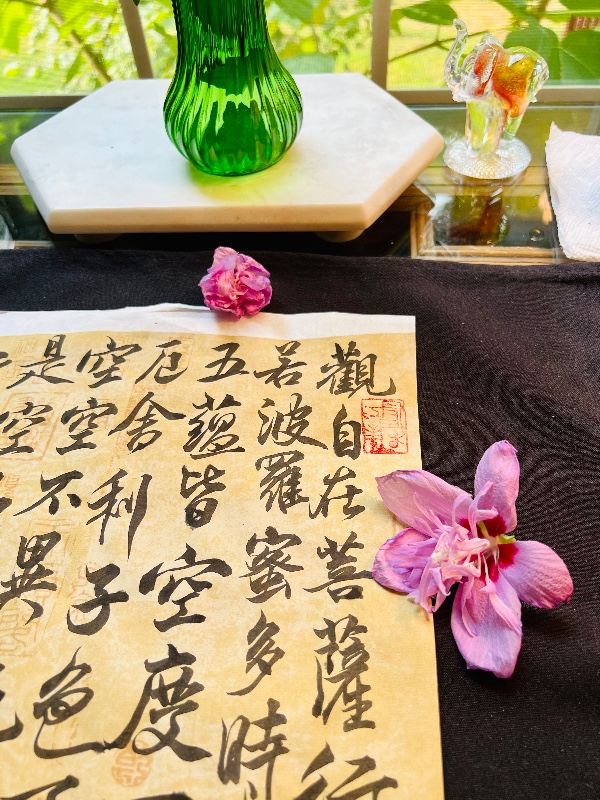 觀自在菩薩行
若波羅蜜多時
五蘊皆空度
厄舍利子色
空空不異
是空